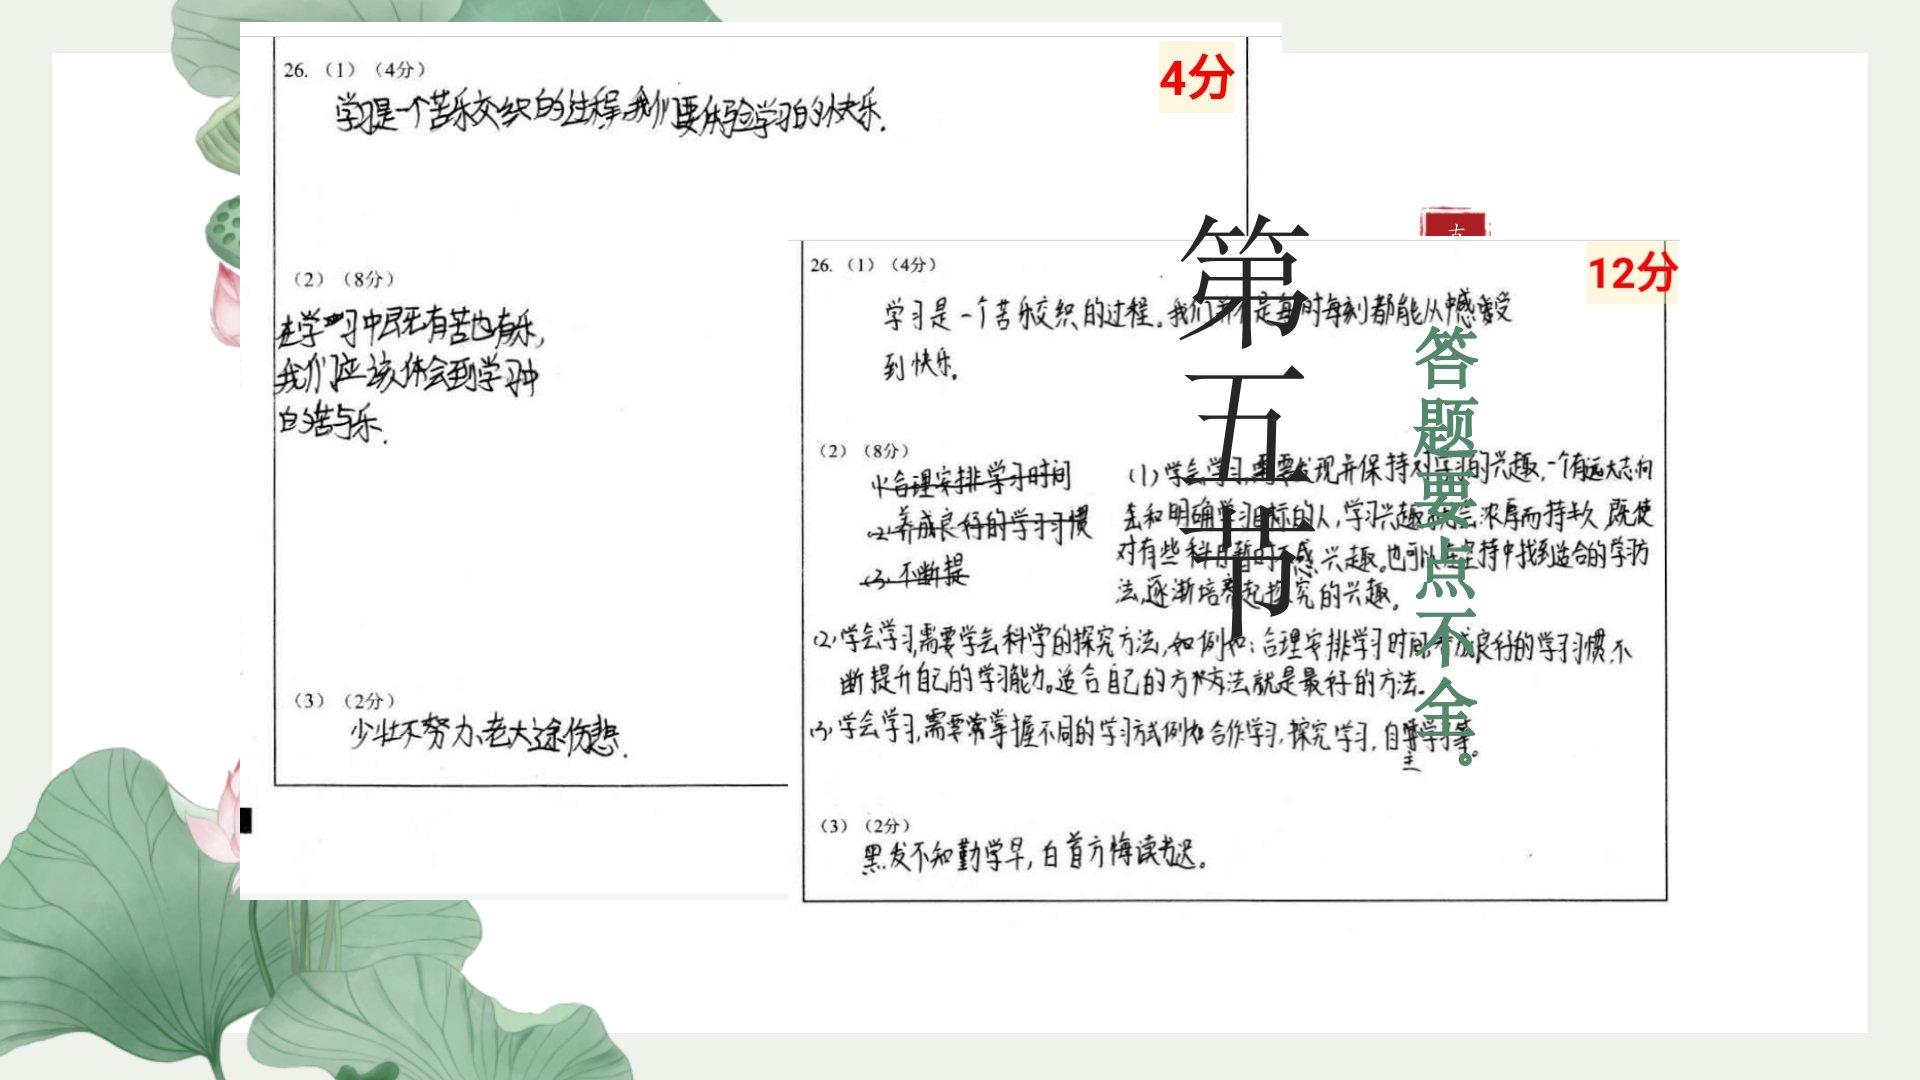 26. （1）（4分）
4分
学习是一个苦乐交织的过程,我们要体验学习的快乐.
（2）（8分）
在学习中既有苦也有乐,
我们应该体会到学习中
的苦与乐.
（3）（2分）
少壮不努力、老大途伤悲.
第五节
古
答题要点不全。
26. （1）（4分）
12分
学习是一个苦乐交织的过程。我们并不是每时每刻都能从中感受
到快乐。
（2）（8分）
(1)合理安排学习时间
(2)养成良好的学习习惯
(3)不断提
(1)学会学习,需要发现并保持对学习的兴趣,一个有远大志向
去和明确学习目标的人,学习兴趣会浓厚而持久 既使
对有些科目暂时不感兴趣。也可以在坚持中找到适合的学防
法,逐渐培养起探究的兴趣。
(2)学会学习,需要学会科学的探究方法,如例如:合理安排学习时间 养成良好的学习习惯,不
断提升自己的学习能力。适合自己的方法就是最好的方法。
(3)学会学习,需要掌握不同的学习方式例如合作学习,探究学习,自主学习等。
（3）（2分）
黑发不知勤学早,白首方悔读书迟。